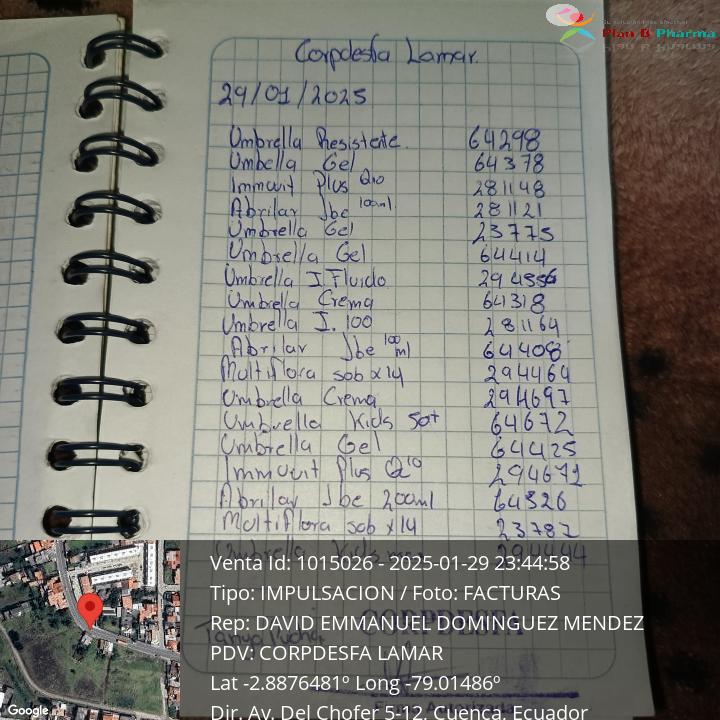 Plan B Pharma
Corpdesfa Lamar.
29/01/2025
Umbrella Resistente. 64298
Umbella Gel 64378
Immuvit Plus Q10 281148
Abrilar Jbe 100ml. 281121
Umbrella Gel 23775
Umbrella Gel 64414
Umbrella I Fluido 294556
Umbrella Crema 64318
Umbrella I. 100 281164
Abrilar Jbe 100 ml 64408
Multiflora sob x14 294464
Umbrella Crema 294697
Umbrella Kids 50+ 64672
Umbrella Gel 64425
Immuvit Plus Q10 294671
Abrilar Jbe 200ml 64326
Multiflora sob x14 23782
Umbrella Kids 294444
Venta Id: 1015026 - 2025-01-29 23:44:58
Tipo: IMPULSACION / Foto: FACTURAS
CORPDESFA
Rep: DAVID EMMANUEL DOMINGUEZ MENDEZ
PDV: CORPDESFA LAMAR
Lat -2.8876481º Long -79.01486º
Dir. Av. Del Chofer 5-12, Cuenca, Ecuador
Google